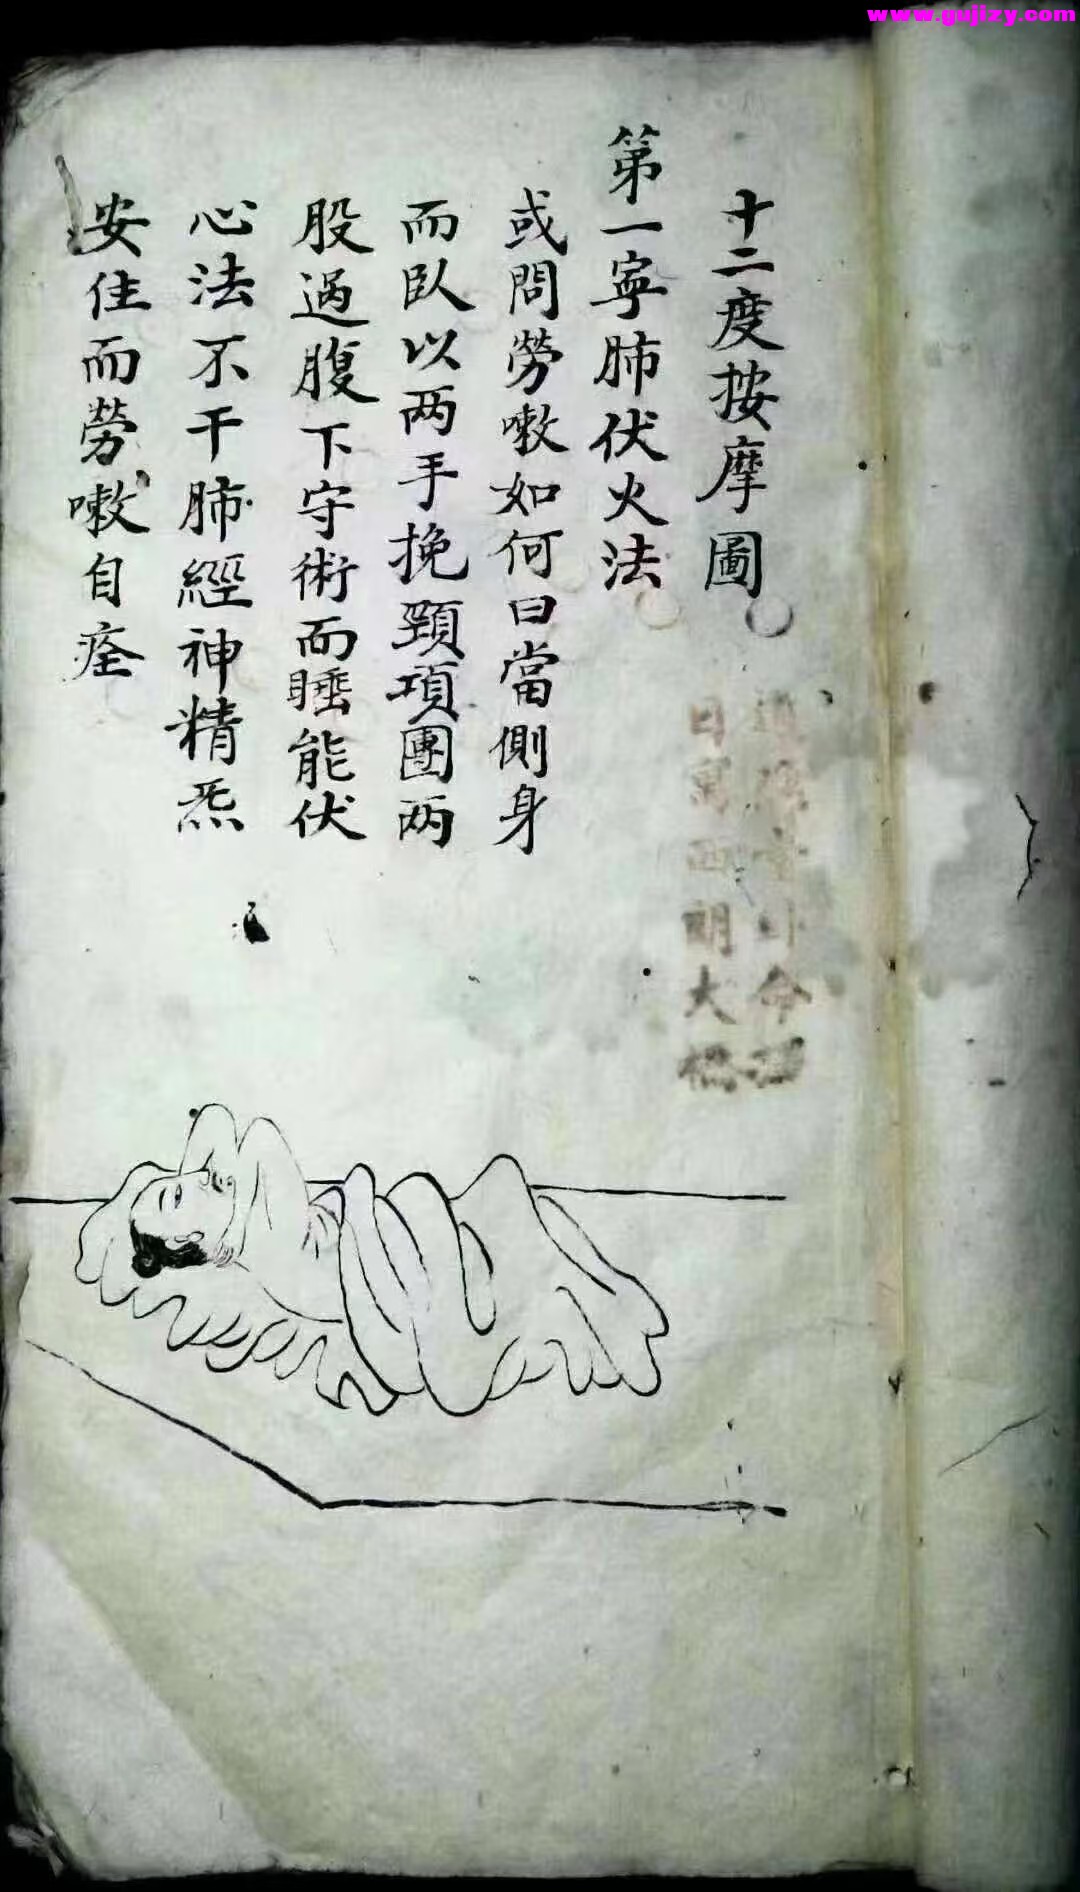 www.gujizy.com
十二度按摩圖
第一寧肺伏火法
或問勞嗽如何曰當側身
而臥以两手挽頸項團两
股過腹下守術而睡能伏
心法不干肺經神精炁
安住而勞嗽自痊
命
日寓西朗大橋